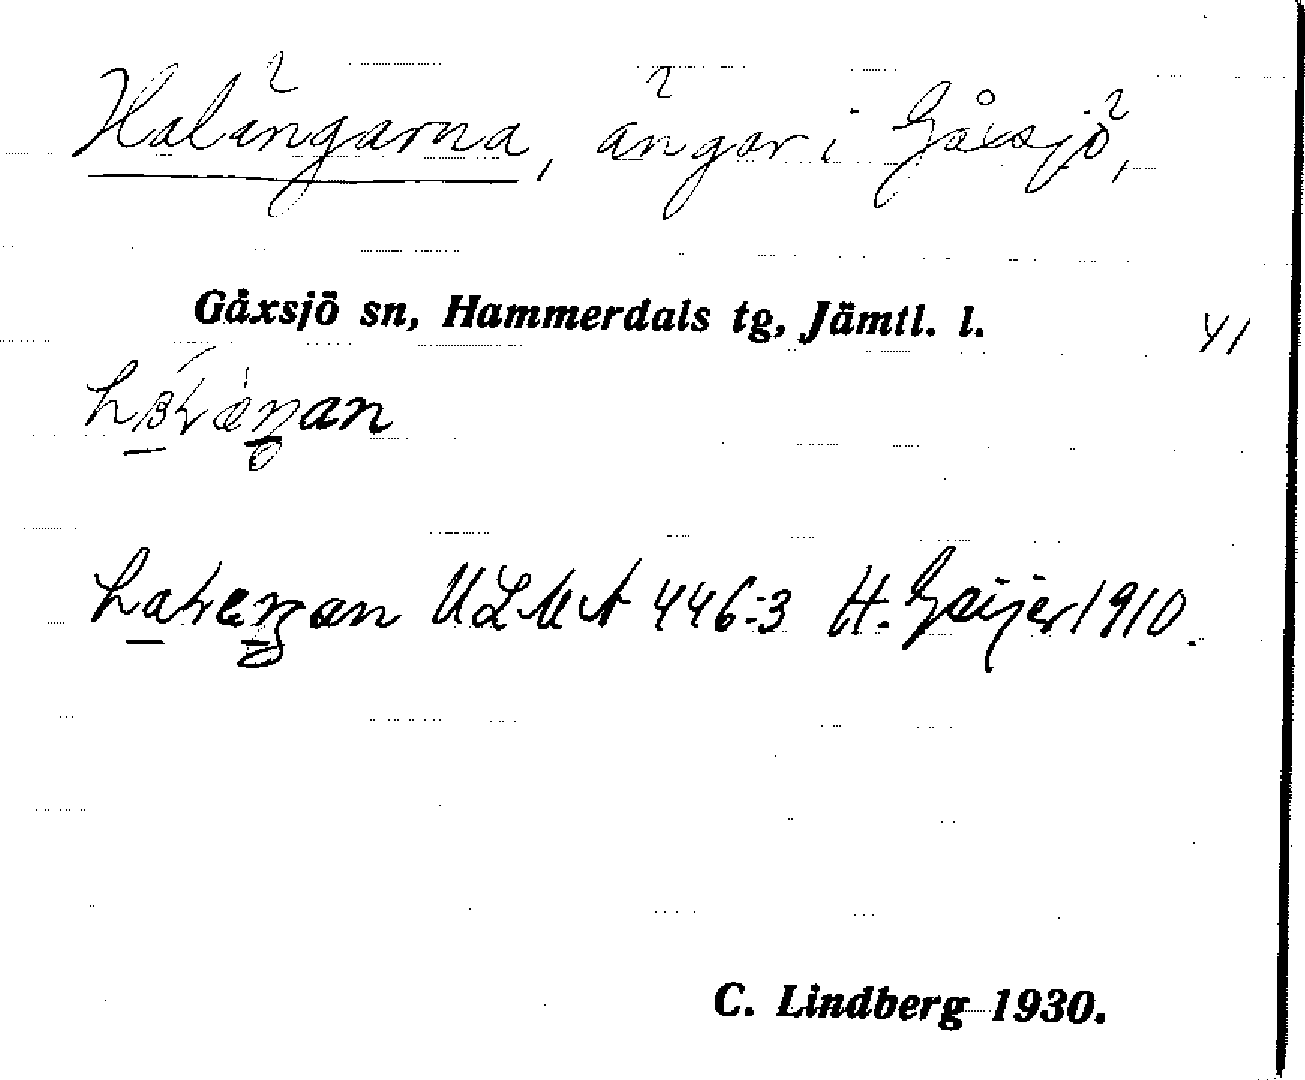 Halängarna, ängar i Gåxsjö,
Gåxsjö sn, Hammerdals tg, Jämtl. l.
41
ULMA 446:3 H. Geijer 1910.
C. Lindberg 1930.